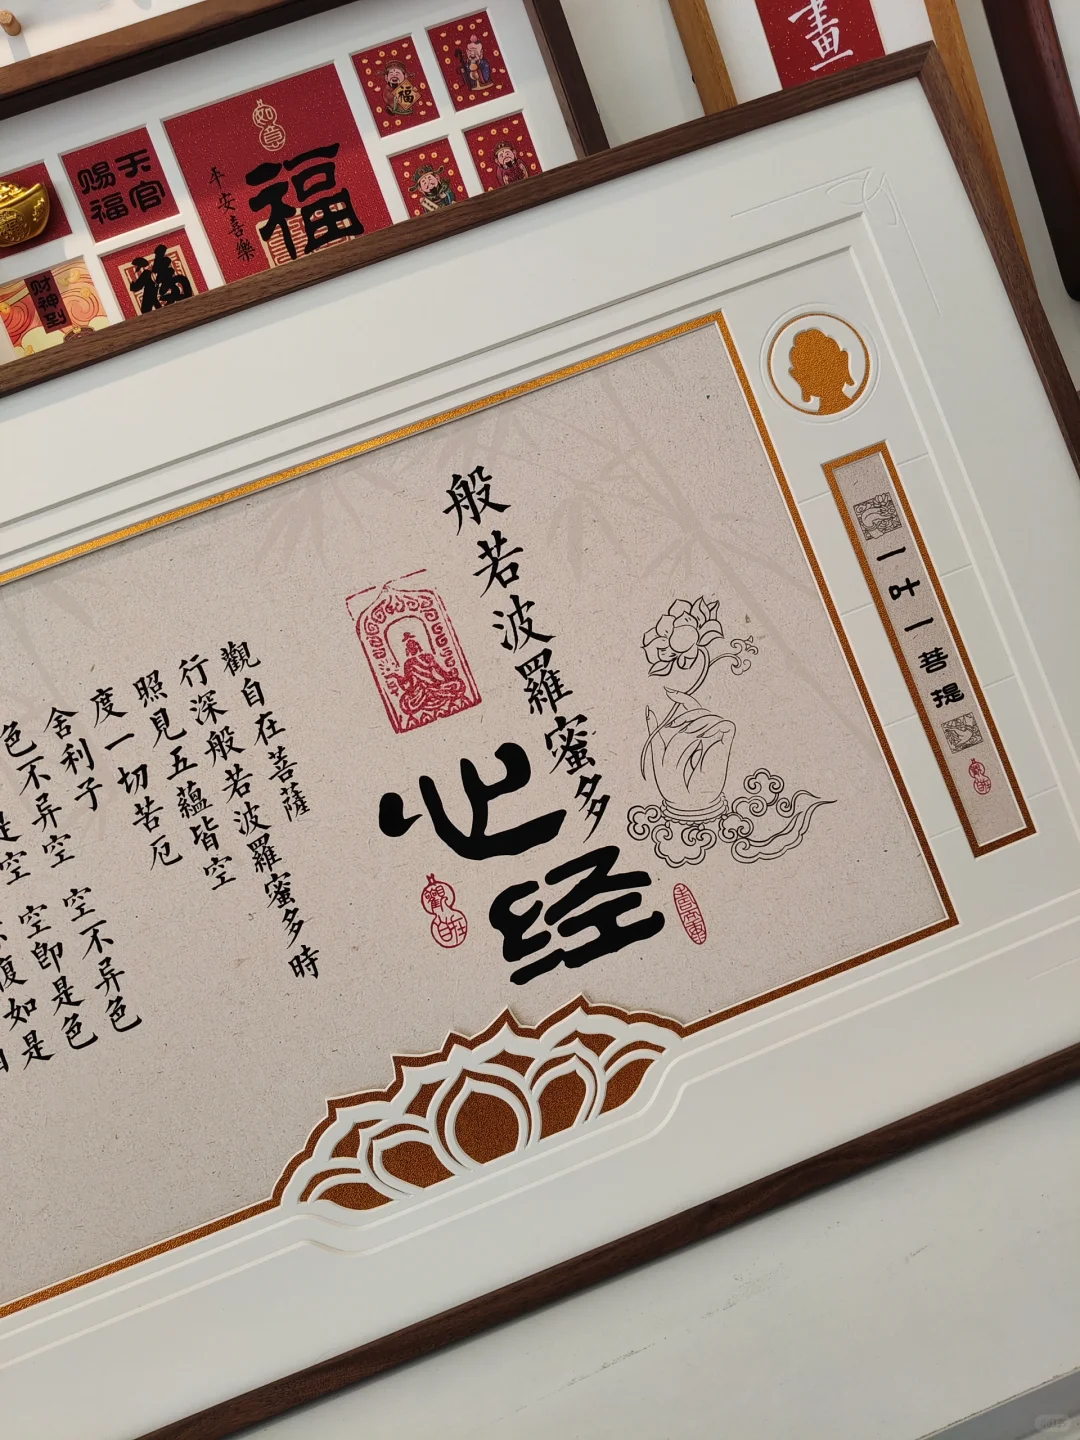 畫
福
如意
福
平安喜樂
天官
赐福
福
财神到
一叶一菩提
般若波羅蜜多
心经
觀自在菩薩
行深般若波羅蜜多時
照見五蘊皆空
度一切苦厄
舍利子
色不异空 空不异色
是空 空即是色
復如是